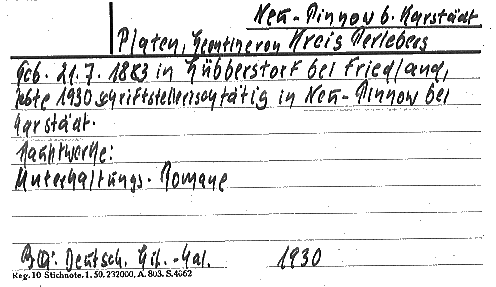 Neu-Pinnow b. Karstädt
Platen, Leontine von Kreis Perleberg
Geb. 21.7.1883 in Lübberstorf bei Friedland,
lebte 1930 schriftstellerisch tätig in Neu-Pinnow bei
Karstädt.
Hauptwerke:
Unterhaltungs-Romane
BQ: Deutsch. Lit.-Kal. 1930
Reg. 10 Stichnote. 1. 50. 232000, A. 803. S. 4062